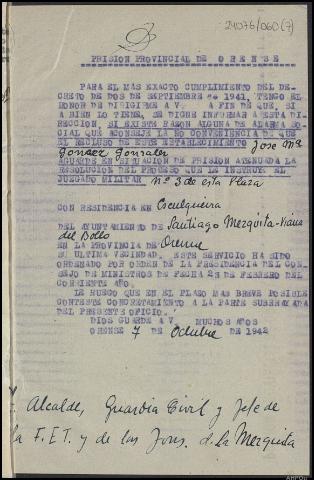 24076/060(7)
PRISION PROVINCIAL DE O R E N S E
PARA EL MAS EXACTO CUMPLIMIENTO DEL DE-
CRETO DE DOS DE SEPTIEMBRE de 1941, TENGO EL
HONOR DE DIRIGIRME A V. A FIN DE QUE, SI
A BIEN LO TIENE, SE DIGNE INFORMAR A ESTA DI-
RECCION, SI EXISTE RAZON ALGUNA DE ALARMA SO-
CIAL QUE ACONSEJE LA NO CONVENIENCIA DE QUE
EL RECLUSO DE ESTE ESTABLECIMIENTO Jose Mª
Gonzalez
AGUARDE EN SITUACION DE PRISION ATENUADA LA
RESOLUCION DEL PROCESO QUE LE INSTRUYE EL
JUZGADO MILITAR Nº 3 de esta Plaza
CON RESIDENCIA EN Esculqueira
DEL AYUNTAMIENTO DE Santiago Mezquita-Viana
del Bollo
EN LA PROVINCIA DE Orense
SU ULTIMA VECINDAD. ESTE SERVICIO HA SIDO
ORDENADO POR ORDEN DE LA PRESIDENCIA DEL CON-
SEJO DE MINISTROS DE FECHA 25 DE FEBRERO DEL
CORRIENTE AÑO.
LE RUEGO QUE EN EL PLAZO MAS BREVE POSIBLE
CONTESTE CONCRETAMENTO A LA PARTE SUBRRAYADA
DEL PRESENTE OFICIO.
DIOS GUARDE A V. MUCHOS AÑOS
ORENSE 7 DE Octubre DE 1942
Alcalde, Guardia Civil y Jefe de
la F.E.T. y de las Jons. de la Mezquita